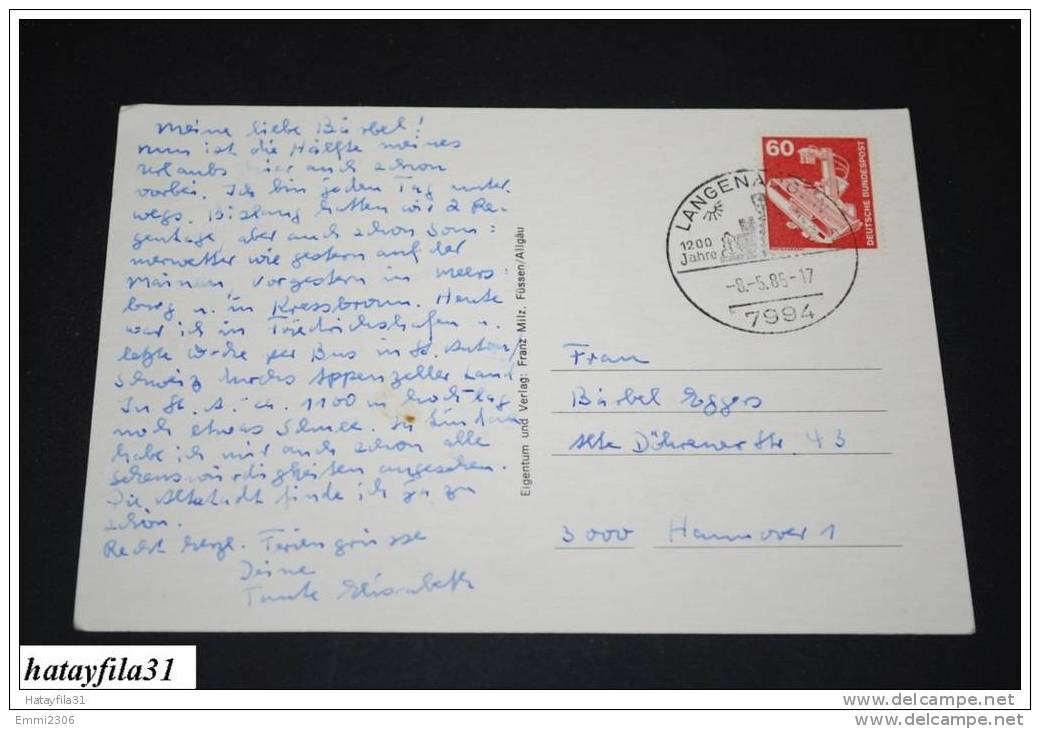 Meine liebe Bärbel!
nun ist die Hälfte meines
Urlaubs hier auch schon
vorbei. Ich bin jeden Tag unter
wegs. Bislang hatten wir 2 Re-
gentage, aber auch schon Som-
merwetter wie gestern auf der
Mainau, vorgestern in Meers-
burg u. in Kressbronn. Heute
war ich in Friedrichshafen u.
letzte Woche per Bus in St. Anton/
Schweiz durchs Appenzeller Land
In St. A. ca. 1100 m hoch lag
noch etwas Schnee. In Lindau
habe ich mir auch schon alle
Sehenswürdigkeiten angesehen.
Die Altstadt finde ich ja zu
schön.
Recht herzl. Feriengrüsse
Deine
Tante Elisabeth
Eigentum und Verlag: Franz Milz, Füssen/Allgäu
60
DEUTSCHE BUNDESPOST
1200
Jahre
-8.-5.86-17
7994
Frau
Bärbel Eggers
Alte Döhrener Str. 43
3000 Hannover 1
hatayfila31
Hatayfila31
www.delcampe.net
Emmi2306
www.delcampe.net